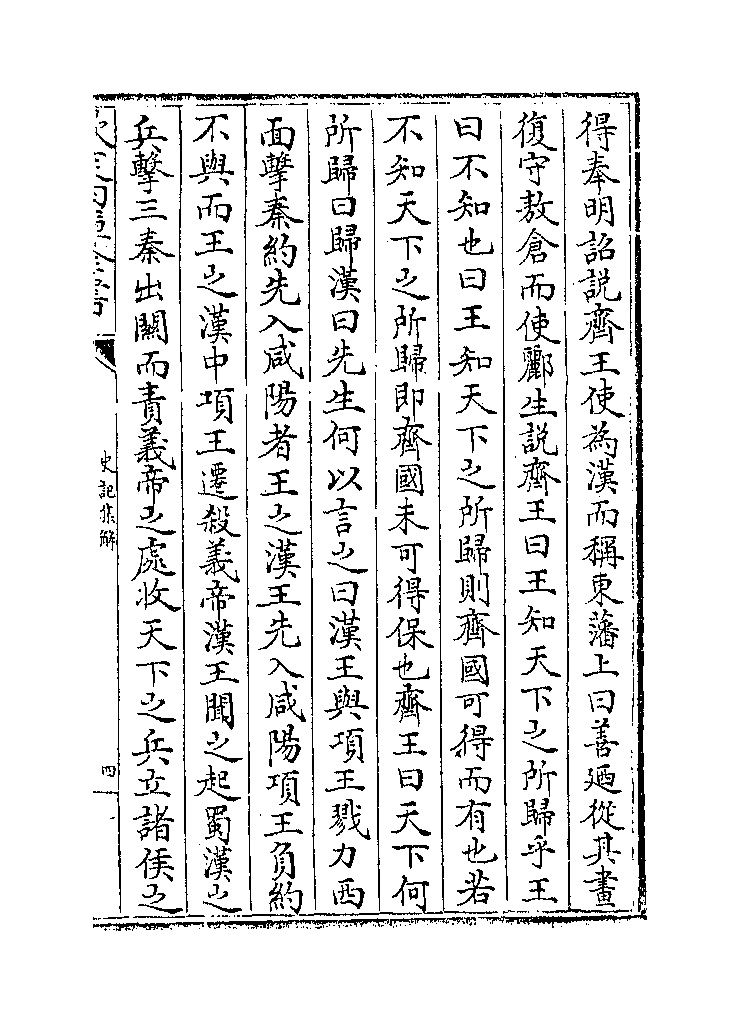 得奉明詔説齊王使為漢而稱東藩上曰善廼從其畫
復守敖倉而使酈生説齊王曰王知天下之所歸乎王
曰不知也曰王知天下之所歸則齊國可得而有也若
不知天下之所歸即齊國未可得保也齊王曰天下何
所歸曰歸漢曰先生何以言之曰漢王與項王戮力西
面擊秦約先入咸陽者王之漢王先入咸陽項王負約
不與而王之漢中項王遷殺義帝漢王聞之起蜀漢之
兵擊三秦出關而責義帝之處收天下之兵立諸侯之
史記集解
四